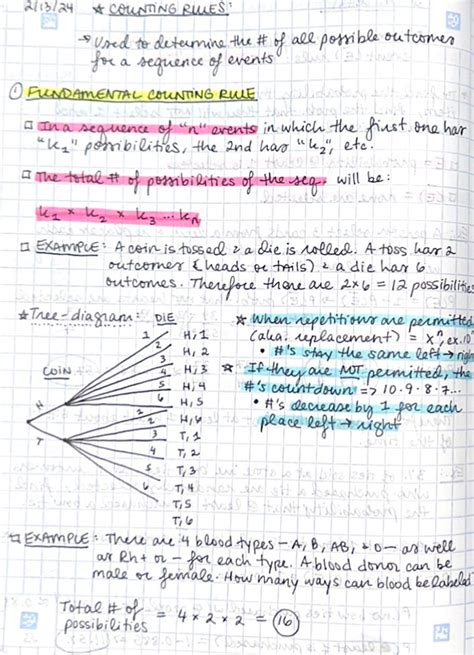 2/13/24 ★ COUNTING RULES:
→ Used to determine the # of all possible outcomes
for a sequence of events
① FUNDAMENTAL COUNTING RULE
□ In a sequence of "n" events in which the first one has
"k₁" possibilities, the 2nd has "k₂", etc.
□ The total # of possibilities of the seq. will be:
k₁ × k₂ × k₃ ... kₙ
□ EXAMPLE: A coin is tossed & a die is rolled. A toss has 2
outcomes (heads or tails) & a die has 6
outcomes. Therefore there are 2×6 = 12 possibilities
★ Tree-diagram: DIE
COIN
H
T
1 H, 1
2 H, 2
3 H, 3
4 H, 4
5 H, 5
6 H, 6
1 T, 1
2 T, 2
3 T, 3
4 T, 4
5 T, 5
6 T, 6
★ When repetitions are permitted
(aka. replacement) = xⁿ, ex. 10
• #'s stay the same left → right
★ If they are NOT permitted, the
#'s countdown => 10·9·8·7...
• #'s decrease by 1 for each
place left → right
□ EXAMPLE: There are 4 blood types – A, B, AB, & O – as well
as Rh + or – for each type. A blood donor can be
male or female. How many ways can blood be labeled
Total # of
possibilities = 4 × 2 × 2 = 16